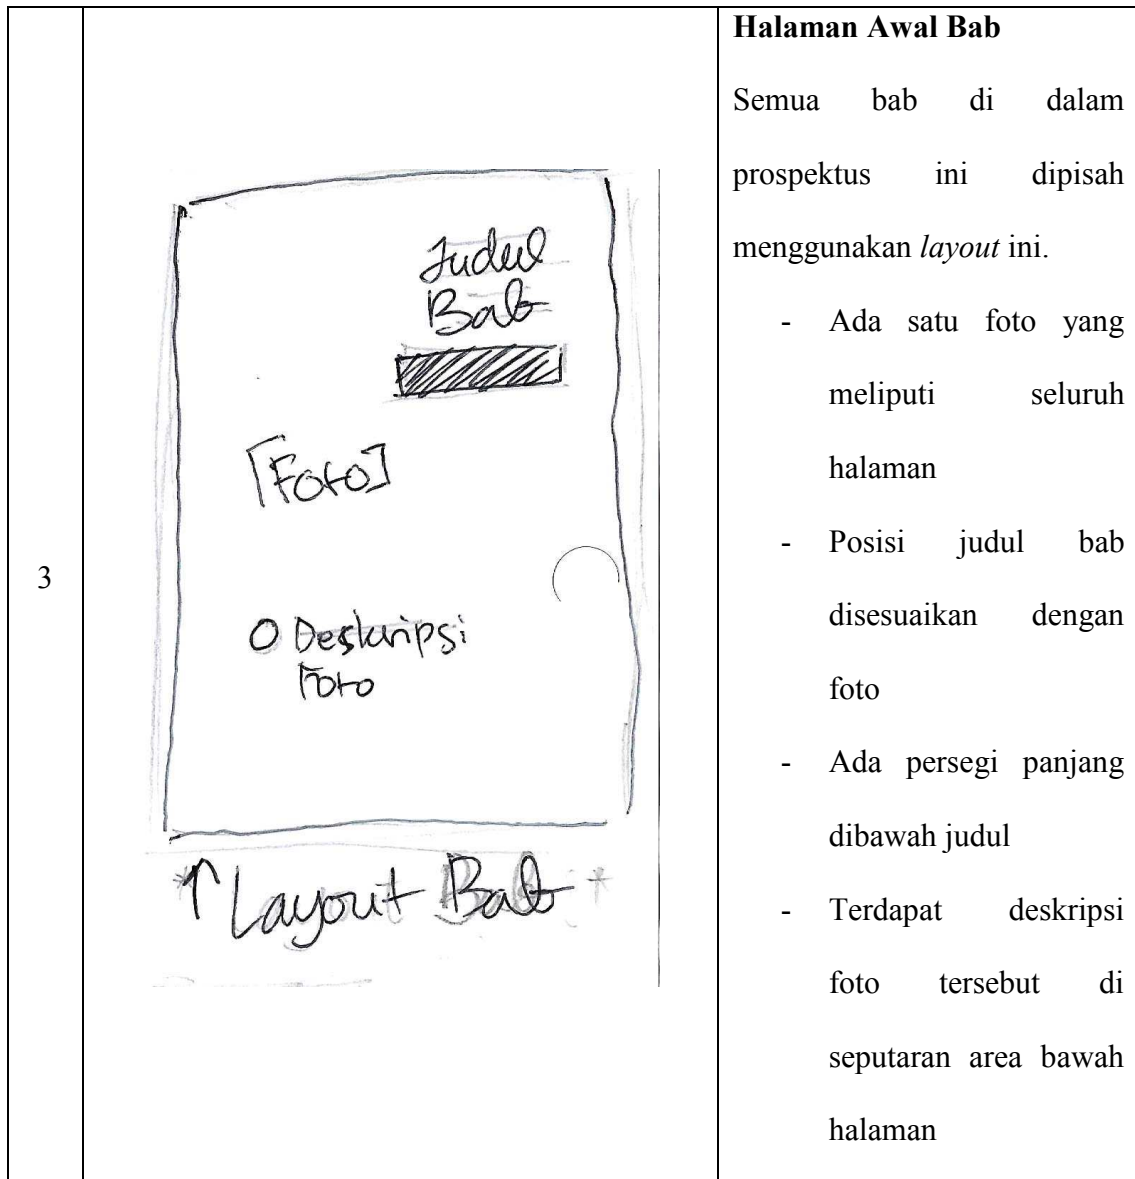 3
Judul
Bab
[Foto]
O Deskripsi
Foto
↑ Layout Bab
Halaman Awal Bab
Semua bab di dalam
prospektus ini dipisah
menggunakan layout ini.
- Ada satu foto yang
meliputi seluruh
halaman
- Posisi judul bab
disesuaikan dengan
foto
- Ada persegi panjang
dibawah judul
- Terdapat deskripsi
foto tersebut di
seputaran area bawah
halaman